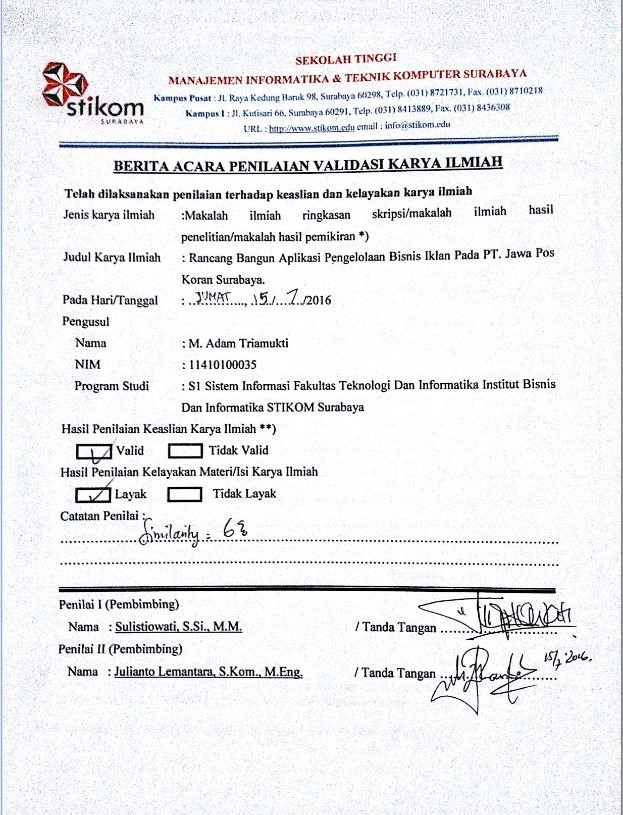 stikom
SURABAYA
SEKOLAH TINGGI
MANAJEMEN INFORMATIKA & TEKNIK KOMPUTER SURABAYA
Kampus Pusat : Jl. Raya Kedung Baruk 98, Surabaya 60298, Telp. (031) 8721731, Fax. (031) 8710218
Kampus I : Jl. Kutisari 66, Surabaya 60291, Telp. (031) 8413889, Fax. (031) 8436308
URL : http://www.stikom.edu email : info@stikom.edu
BERITA ACARA PENILAIAN VALIDASI KARYA ILMIAH
Telah dilaksanakan penilaian terhadap keaslian dan kelayakan karya ilmiah
Jenis karya ilmiah :Makalah ilmiah ringkasan skripsi/makalah ilmiah hasil
penelitian/makalah hasil pemikiran *)
Judul Karya Ilmiah : Rancang Bangun Aplikasi Pengelolaan Bisnis Iklan Pada PT. Jawa Pos
Koran Surabaya.
Pada Hari/Tanggal : ..JUMAT......, .15./...7../2016
Pengusul
Nama : M. Adam Triamukti
NIM : 11410100035
Program Studi : S1 Sistem Informasi Fakultas Teknologi Dan Informatika Institut Bisnis
Dan Informatika STIKOM Surabaya
Hasil Penilaian Keaslian Karya Ilmiah **)
Valid Tidak Valid
Hasil Penilaian Kelayakan Materi/Isi Karya Ilmiah
Layak Tidak Layak
Catatan Penilai :
Similarity =
Penilai I (Pembimbing)
Nama : Sulistiowati, S.Si., M.M. / Tanda Tangan
Penilai II (Pembimbing)
Nama : Julianto Lemantara, S.Kom., M.Eng. / Tanda Tangan